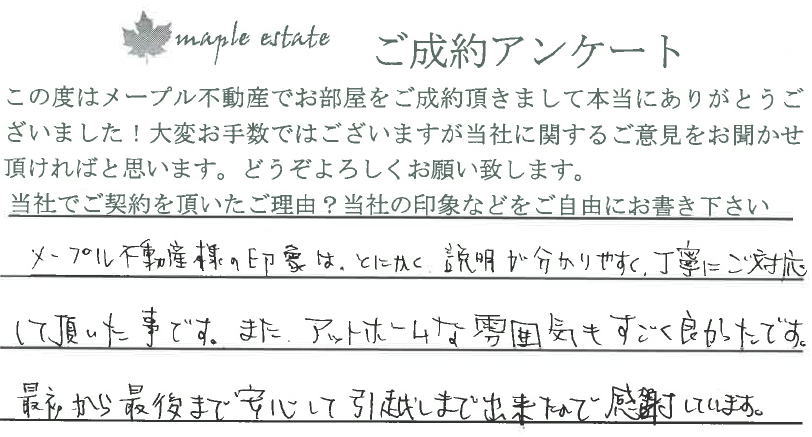 maple estate ご成約アンケート
この度はメープル不動産でお部屋をご成約頂きまして本当にありがとうご
ざいました！大変お手数ではございますが当社に関するご意見をお聞かせ
頂ければと思います。どうぞよろしくお願い致します。
当社でご契約を頂いたご理由？当社の印象などをご自由にお書き下さい
メープル不動産様の印象は、とにかく、説明が分かりやすく、丁寧にご対応
して頂いた事です。また、アットホームな雰囲気もすごく良かったです。
最初から最後まで安心して引越しまで出来たので感謝しています。